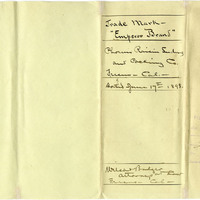 Trade Mark -
"Emperor Brand"
Phoenix Raisin Seeding
and Packing Co
Fresno - Cal -
dated June 17th 1898.
Attorney
Fresno - Cal -